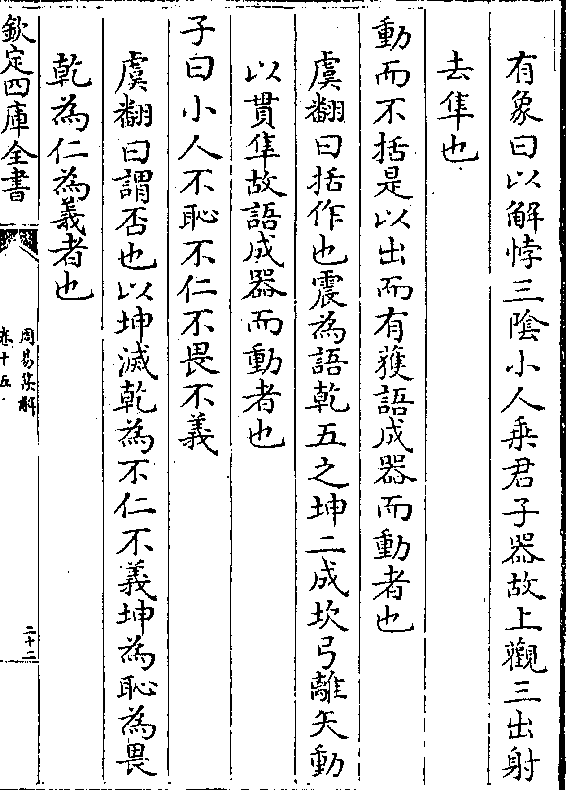 有象曰以解悖三陰小人乗君子器故上觀三出射
去隼也
動而不括是以出而有獲語成器而動者也
虞翻曰括作也震為語乾五之坤二成坎弓離矢動
以貫隼故語成器而動者也
子曰小人不恥不仁不畏不義
虞翻曰謂否也以坤滅乾為不仁不義坤為恥為畏
乾為仁為義者也
欽定四庫全書
周易集解
卷十五
二十二